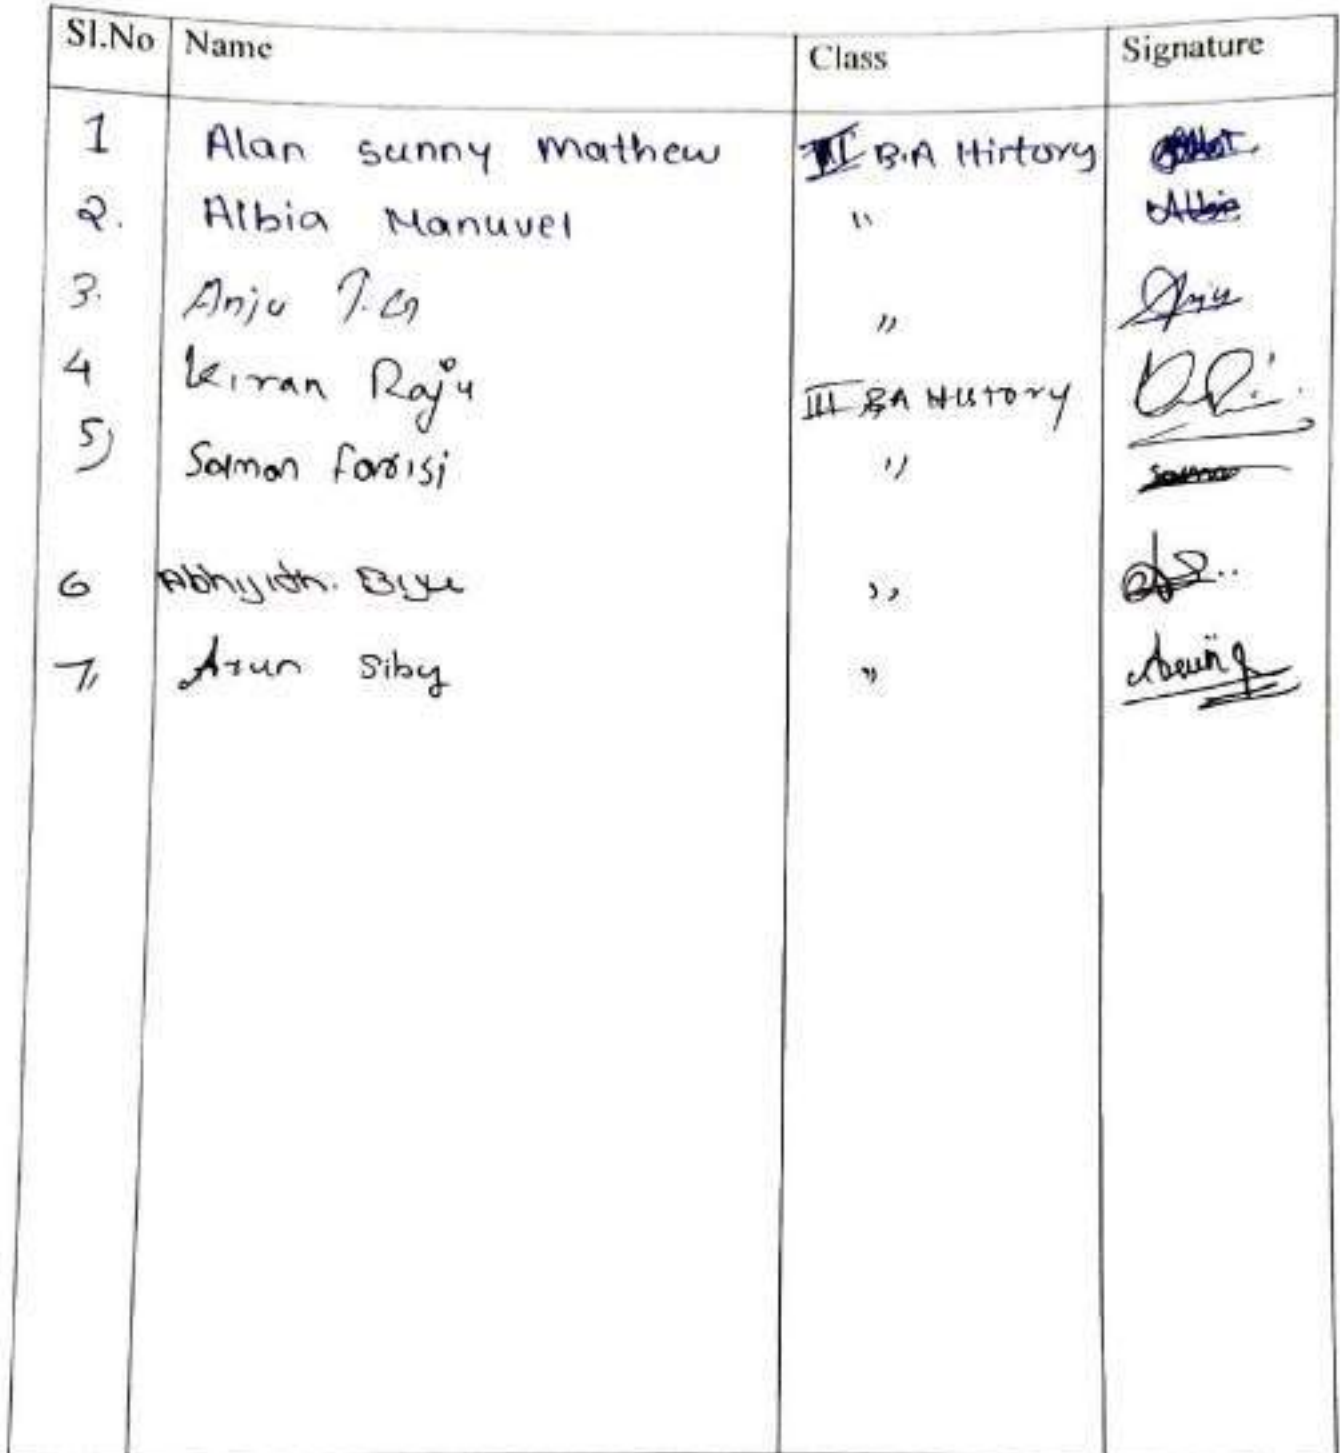 Sl.No Name Class Signature
1 Alan sunny Mathew III B.A Hirtory
2. Albia Manuvel " Albia
3. Anju " Anju
4 Kiran Raju III BA History
5) Salman farisi " Salman
6 Abhijith. "
7, Arun Siby " Arun